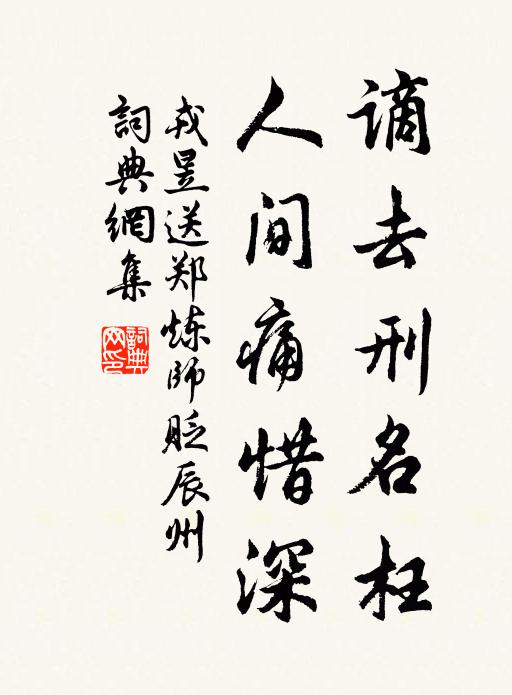 谪去刑名枉
人间痛惜深
戎昱送郑炼师贬辰州
詞典網集
詞典網印